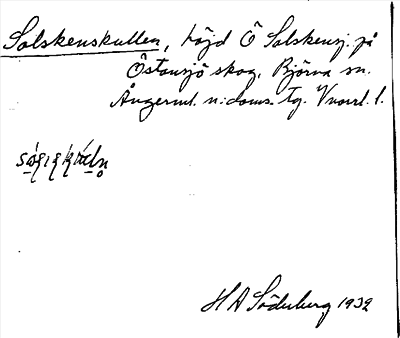 Solskenskullen, höjd Ö Solskensj. på
Östansjö skog, Björna sn.
Ångerml. n:doms. tg. Vnorrl. l.
H A Söderberg 1932